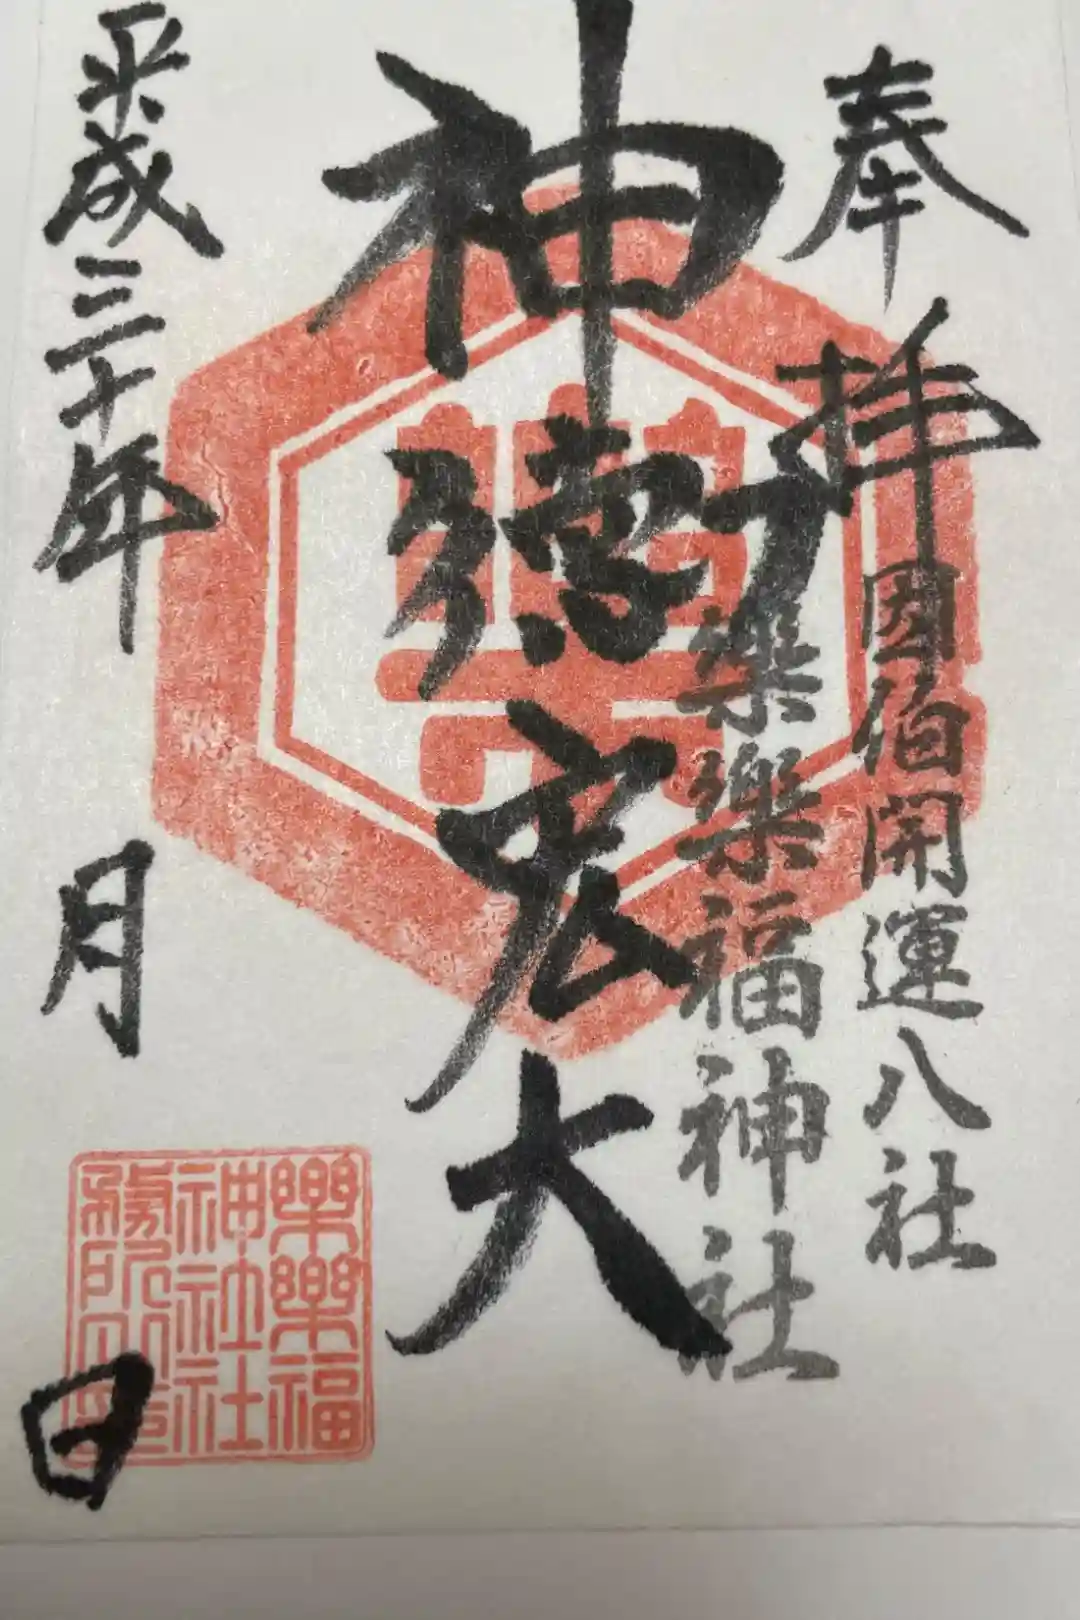 奉拝
因伯開運八社
樂樂福神社
神徳宏大
平成三十年
月
日
樂樂福
神社社
務所